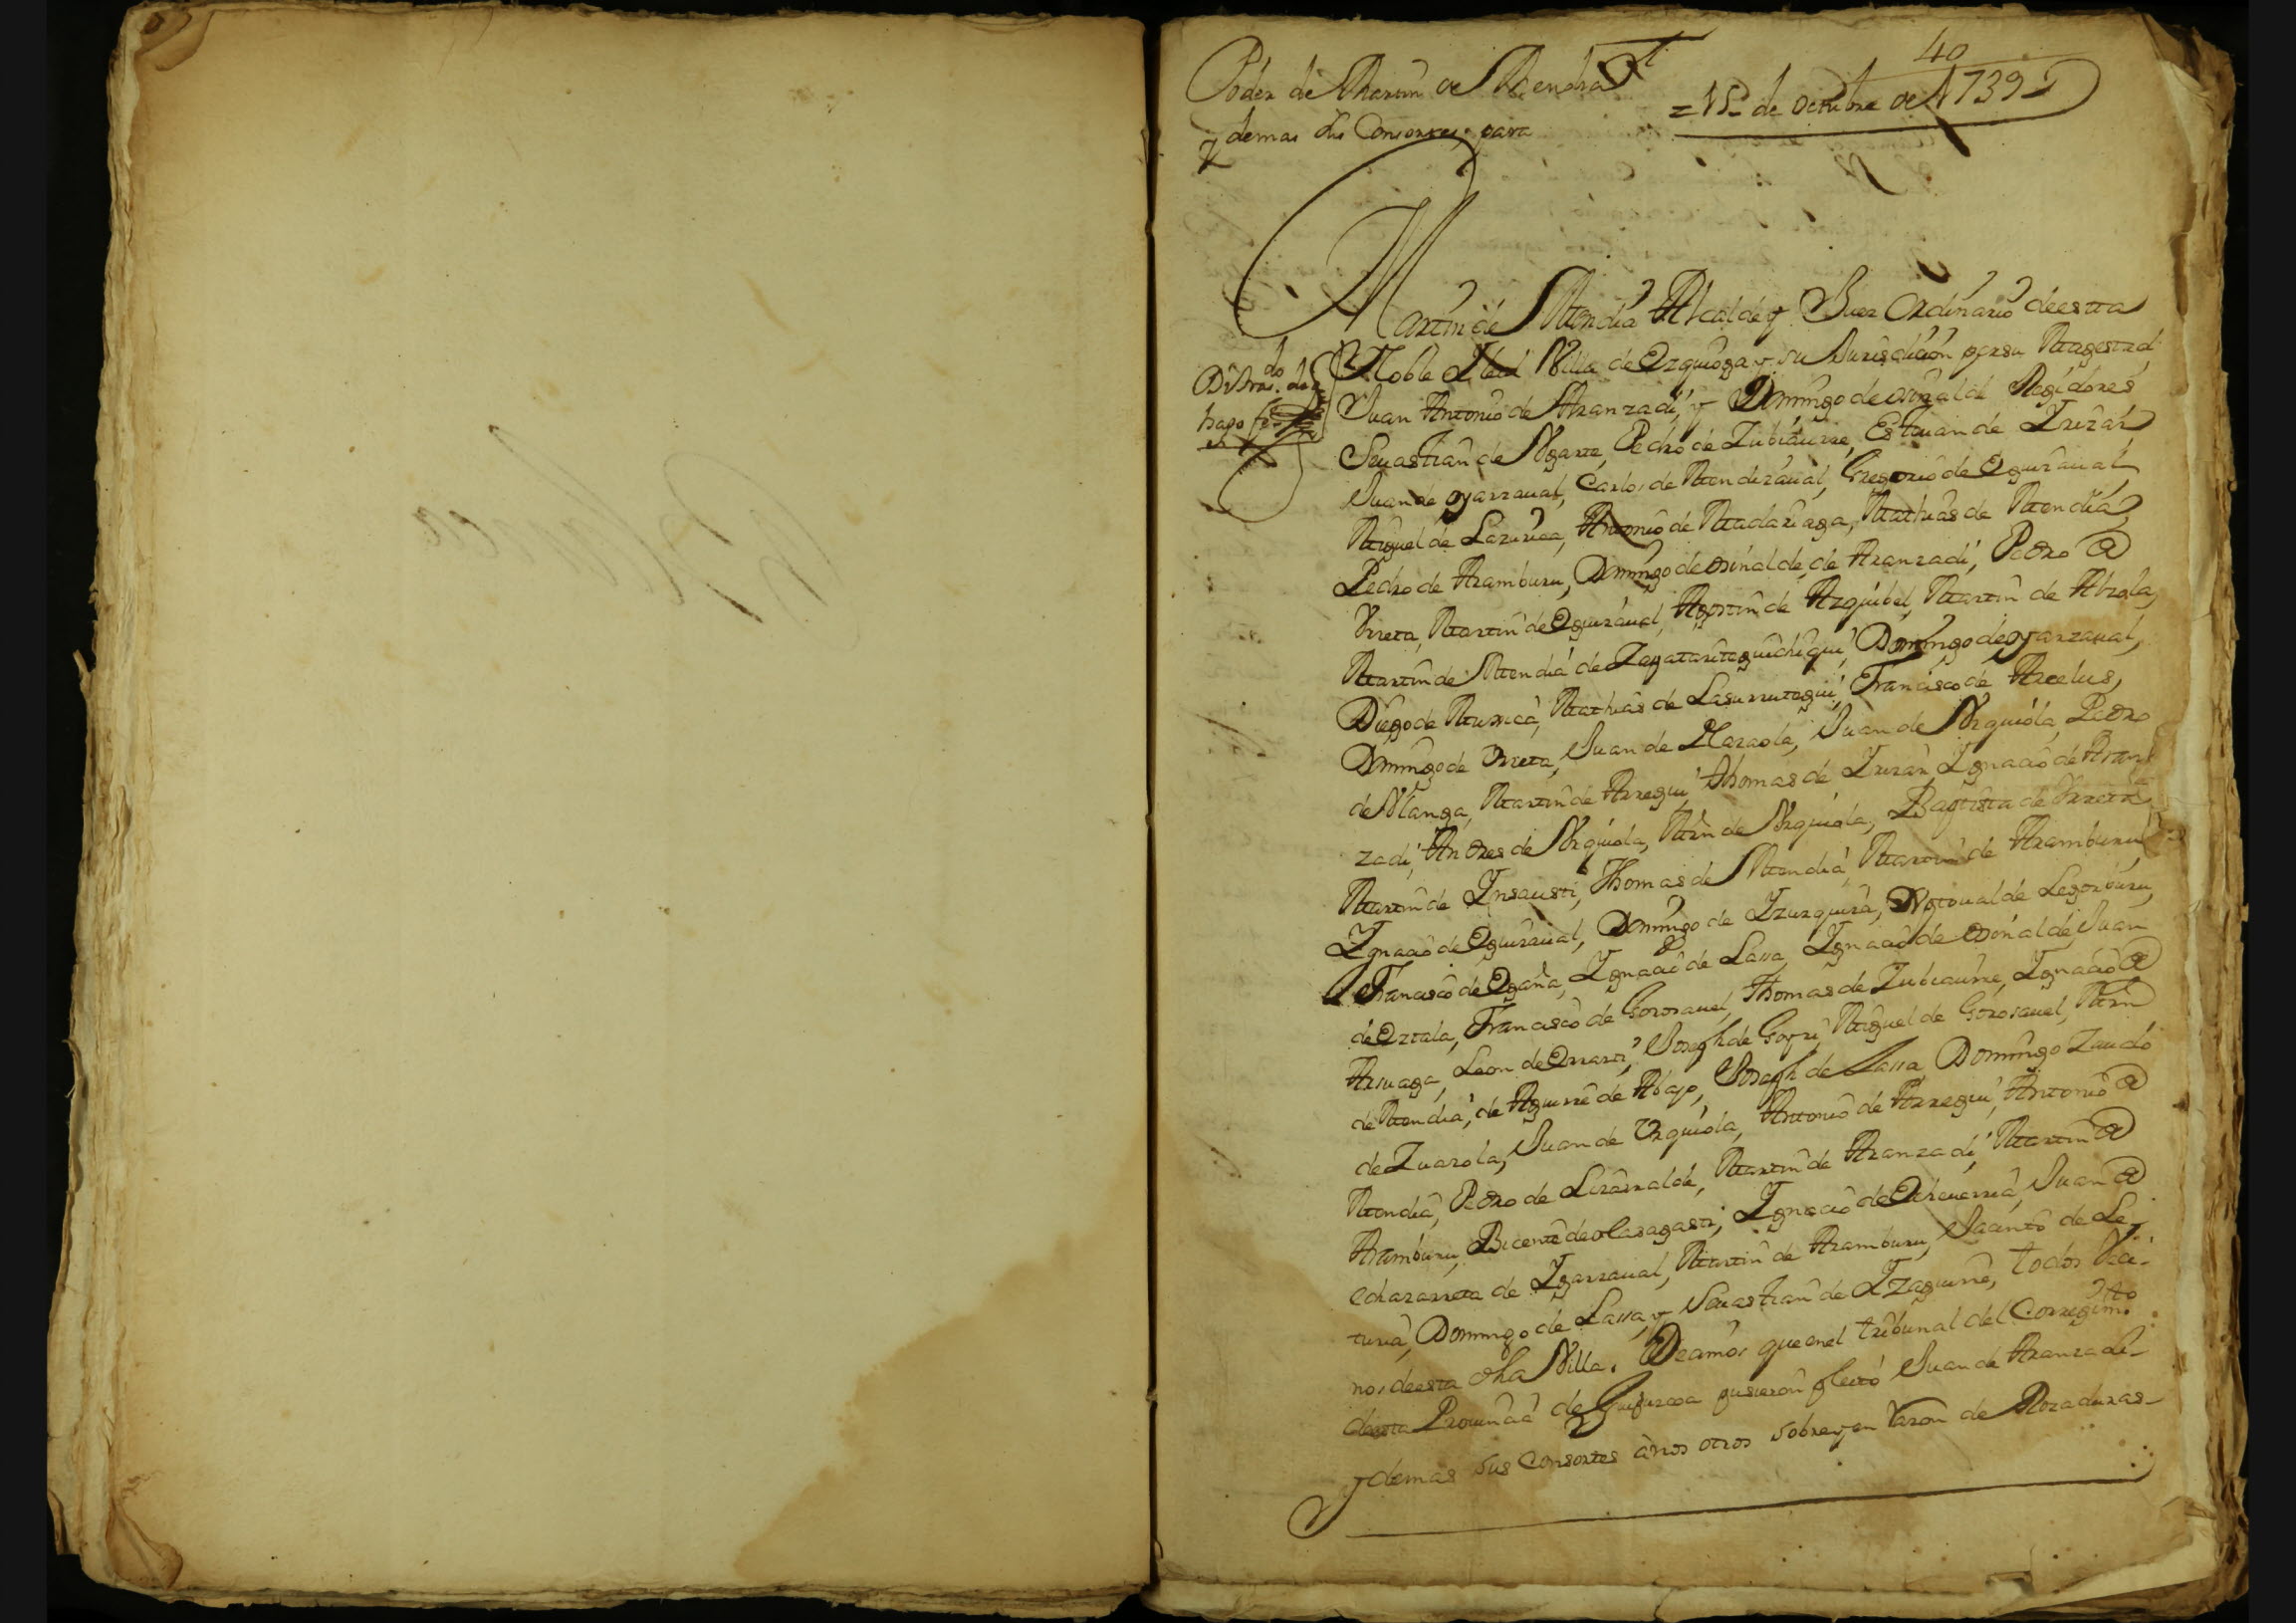 Blanca
40
Poder de Martin de Mendia
y demas sus Consortes para
= 15 de octubre de 1739
Martin de Mendia Alcalde y Juez Ordinario de esta
Noble Leal Villa de Ezquioga y su Jurisdicion por su Magestad,
Juan Antonio de Aranzadi, y Domingo de orinalde Regidores
Seuastian de Vgarte, Pedro de Zubiaurre, Esteuan de Yrizar
Juan de oyarzaual, Carlos de Mendizaual, Gregorio de Eguizaual,
Miguel de Antonio de Madariaga, Mathias de Mendia,
Pedro de Aramburu, Domingo de orinalde, de Aranzadi, Pedro de
Vrreta, Martin de Eguizaual, Agustin de Azguibel, Martin de
Martin de Mendia de Domingo de oyarzaual,
Diego de Mathias de Lasurtegui, Francisco de Arcelus,
Domingo de Vrreta, Juan de Juan de Vrquiola, Pedro
de Alanga, Martin de Arregui Thomas de Yrizar, Ygnacio de Aran
zadi, Andres de Vrquiola, Mrn de Vrquiola, Baptista de Vrreta
Martin de Ynsausti, Thomas de Mendia, Martin de Aramburu
Ygnacio de Eguizaual, Domingo de Yzurquiza, de Legorburu,
Francisco de Egaña, Ygnacio de Lassa, Ygnacio de orinalde, Juan
de Francisco de Gorosauel, Thomas de Zubiaurre, Ygnacio de
Arsuaga, Leon de Joseph de Goyri, Miguel de Gorosauel, Mrn
de Mendia, de Aguirre de Abajo, Joseph de Lassa, Domingo
de Zuazola, Juan de Vrquiola, Antonio de Arregui, Antonio de
Mendia, Pedro de Lizarralde, Martin de Aranzadi, Martin de
Aramburu, Bicente de olasagasti, Ygnacio de Echeuerria, Juan de
echazarreta de Ygarzaual, Martin de Aramburu, Jacinto de Le
turia, Domingo de Lassa, y Seuastian de Yzaguirre, todos Veci-
nos de esta dha Villa. Decimos que en el tribunal del Corregimto
de esta Prouincia de Guipuzcoa pusieron pleito Juan de Aranzadi
y demas sus Consortes anos otros sobre, y en razon de Rozaduras
hago fe